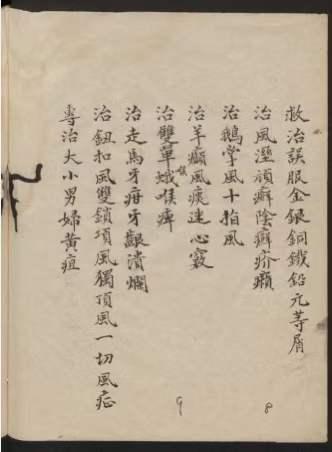 救治誤服金銀銅鐵鉛元等屑
治風溼頑癬陰癬疥癩
治鵝掌風十指風
治羊癲風痰迷心竅
治雙單蛾喉痺
治走馬牙疳牙齦潰爛
治鈕扣風雙鎖項風獨頂風一切風症
專治大小男婦黃疸
8
9